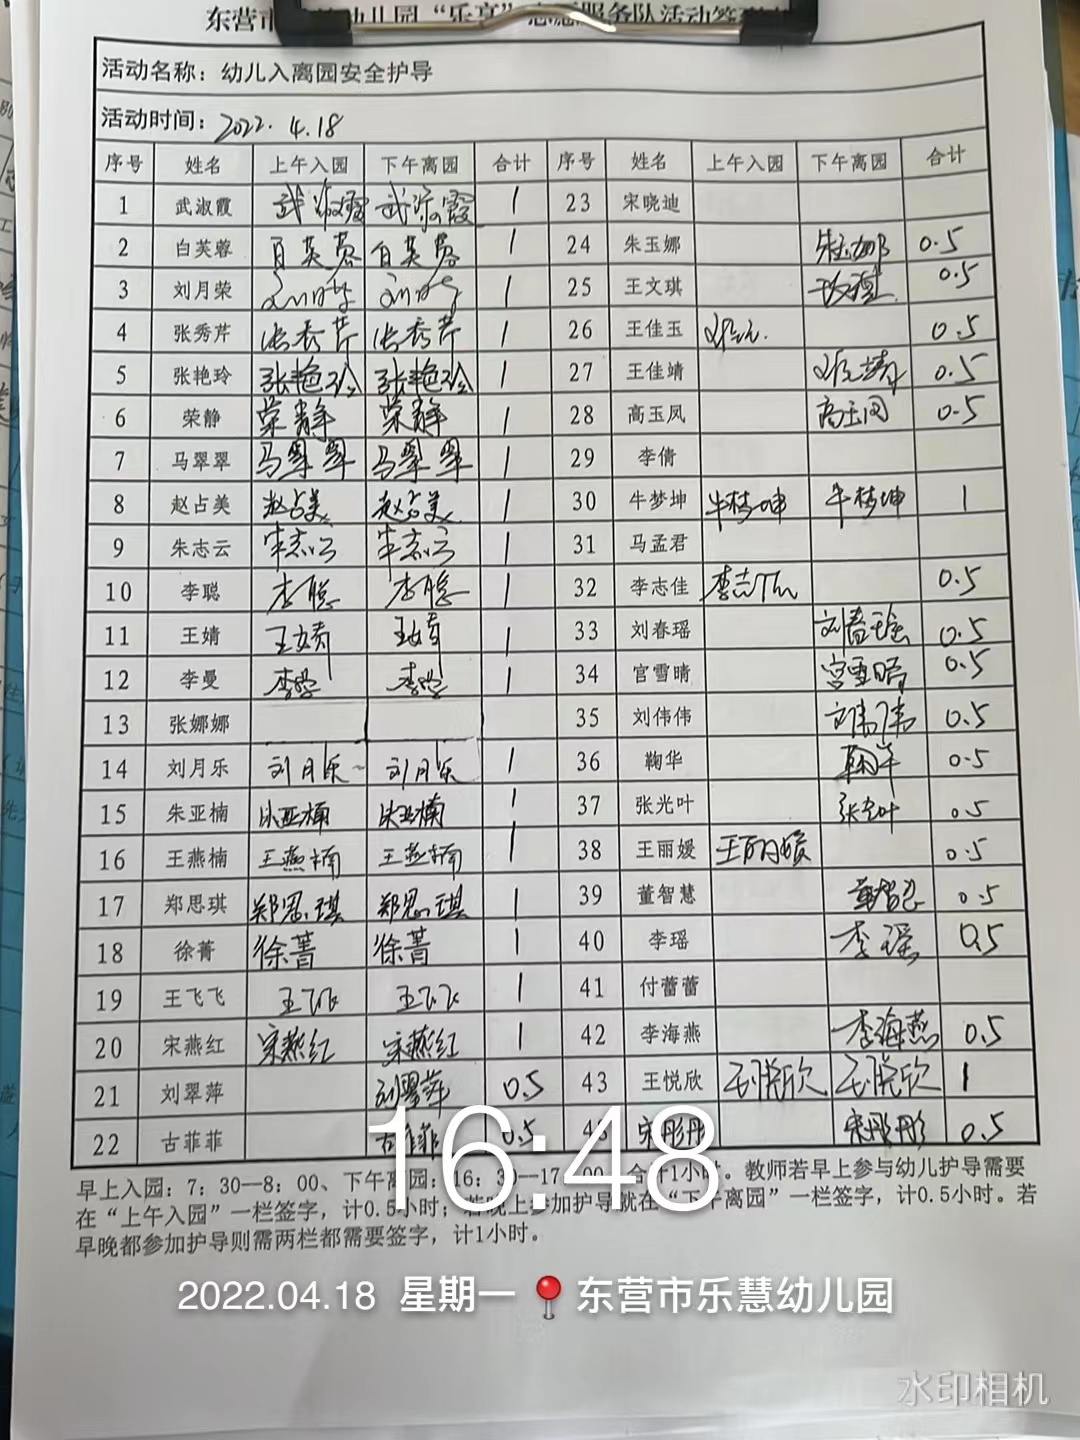 东营市 幼儿园“乐享”志愿服务队活动签
活动名称：幼儿入离园安全护导
活动时间：2022.4.18
序号 姓名 上午入园 下午离园 合计 序号 姓名 上午入园 下午离园 合计
1 武淑霞 武淑霞 武淑霞 1 23 宋晓迪
2 白芙蓉 白芙蓉 白芙蓉 1 24 朱玉娜 朱玉娜 0.5
3 刘月荣 刘月荣 刘月荣 1 25 王文琪 王文琪 0.5
4 张秀芹 张秀芹 张秀芹 1 26 王佳玉 王佳玉 0.5
5 张艳玲 张艳玲 张艳玲 1 27 王佳靖 王佳靖 0.5
6 荣静 荣静 荣静 1 28 高玉凤 高玉凤 0.5
7 马翠翠 马翠翠 马翠翠 1 29 李倩
8 赵占美 赵占美 赵占美 1 30 牛梦坤 牛梦坤 牛梦坤 1
9 朱志云 朱志云 朱志云 1 31 马孟君
10 李聪 李聪 李聪 1 32 李志佳 李志佳 0.5
11 王婧 王婧 王婧 1 33 刘春瑶 刘春瑶 0.5
12 李曼 李曼 李曼 1 34 宫雪晴 宫雪晴 0.5
13 张娜娜 35 刘伟伟 刘伟伟 0.5
14 刘月乐 刘月乐 刘月乐 1 36 鞠华 鞠华 0.5
15 朱亚楠 朱亚楠 朱亚楠 1 37 张光叶 张光叶 0.5
16 王燕楠 王燕楠 王燕楠 1 38 王丽媛 王丽媛 0.5
17 郑思琪 郑思琪 郑思琪 1 39 董智慧 董智慧 0.5
18 徐菁 徐菁 徐菁 1 40 李瑶 李瑶 0.5
19 王飞飞 王飞飞 王飞飞 1 41 付蕾蕾
20 宋燕红 宋燕红 宋燕红 1 42 李海燕 李海燕 0.5
21 刘翠萍 刘翠萍 0.5 43 王悦欣 王悦欣 王悦欣 1
22 古菲菲 古菲菲 0.5 宋彤彤 宋彤彤 0.5
16:48
早上入园：7：30—8：00、下午离园：16：30—17：00 合计1小时。教师若早上参与幼儿护导需要
在“上午入园”一栏签字，计0.5小时；若晚上参加护导就在“下午离园”一栏签字，计0.5小时。若
早晚都参加护导则需两栏都需要签字，计1小时。
2022.04.18 星期一 东营市乐慧幼儿园
水印相机